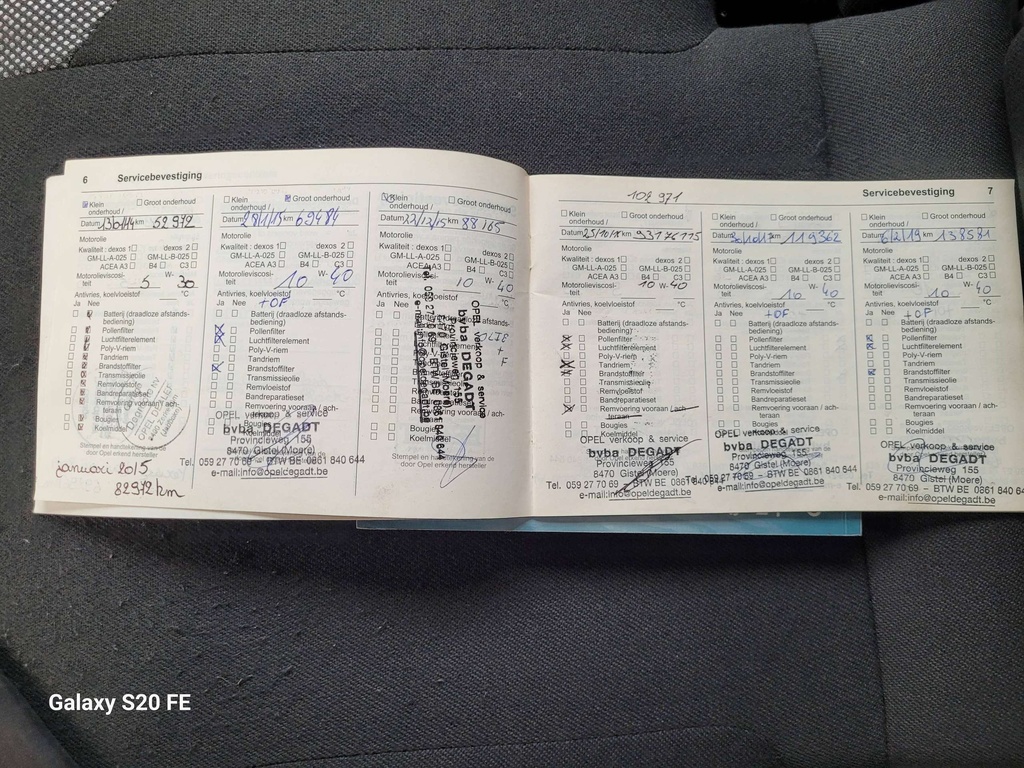 6 Servicebevestiging
Klein onderhoud / Groot onderhoud
Datum 13/01/14 km 52972
Motorolie
Kwaliteit : dexos 1 dexos 2
GM-LL-A-025 GM-LL-B-025
ACEA A3 B4 C3
Motorolieviscositeit 5 W- 30
Antivries, koelvloeistof °C
Ja Nee
Batterij (draadloze afstandsbediening)
Pollenfilter
Luchtfilterelement
Poly-V-riem
Tandriem
Brandstoffilter
Transmissieolie
Remvloeistof
Bandreparatieset
Remvoering vooraan / achteraan
Bougies
Koelmiddel
Stempel en
door Opel erkend hersteller
januari 2015
82972 km
Klein onderhoud / Groot onderhoud
Datum km 69484
Motorolie
Kwaliteit : dexos 1 dexos 2
GM-LL-A-025 GM-LL-B-025
ACEA A3 B4 C3
Motorolieviscositeit 10 W- 40
Antivries, koelvloeistof °C
Ja Nee +OF
Batterij (draadloze afstandsbediening)
Pollenfilter
Luchtfilterelement
Poly-V-riem
Tandriem
Brandstoffilter
Transmissieolie
Remvloeistof
Bandreparatieset
Remvoering vooraan / achteraan
Bougies
OPEL verkoop & service
bvba DEGADT
Provincieweg 155
8470 Gistel (Moere)
Tel. 059 27 70 69 - BTW BE 0861 840 644
e-mail:info@opeldegadt.be
Klein onderhoud / Groot onderhoud
Datum 22/12/15 km 88165
Motorolie
Kwaliteit : dexos 1 dexos 2
GM-LL-A-025 GM-LL-B-025
ACEA A3 B4 C3
Motorolieviscositeit 10 W- 40
Antivries, koelvloeistof °C
Ja Nee
Batterij (draadloze afstandsbediening)
OLIE + F
Bougies
Koelmiddel
door Opel erkend hersteller
OPEL verkoop & service
bvba DEGADT
Provincieweg 155
8470 Gistel (Moere)
Servicebevestiging 7
102 971
Klein onderhoud / Groot onderhoud
Datum km
Motorolie
Kwaliteit : dexos 1 dexos 2
GM-LL-A-025 GM-LL-B-025
ACEA A3 B4 C3
Motorolieviscositeit 10 W- 40
Antivries, koelvloeistof °C
Ja Nee
Batterij (draadloze afstandsbediening)
Pollenfilter
Luchtfilterelement
Poly-V-riem
Tandriem
Brandstoffilter
Transmissieolie
Remvloeistof
Bandreparatieset
Remvoering vooraan / achteraan
Bougies
Koelmiddel
OPEL verkoop & service
bvba DEGADT
Provincieweg 155
8470 Gistel (Moere)
Tel. 059 27 70 69 - BTW BE
e-mail:info@opeldegadt.be
Klein onderhoud / Groot onderhoud
Datum 30/10/17 km 119362
Motorolie
Kwaliteit : dexos 1 dexos 2
GM-LL-A-025 GM-LL-B-025
ACEA A3 B4 C3
Motorolieviscositeit 10 W- 40
Antivries, koelvloeistof °C
Ja Nee +OF
Batterij (draadloze afstandsbediening)
Pollenfilter
Luchtfilterelement
Poly-V-riem
Tandriem
Brandstoffilter
Transmissieolie
Remvloeistof
Bandreparatieset
Remvoering vooraan / achteraan
Bougies
Koelmiddel
OPEL verkoop & service
bvba DEGADT
Provincieweg 155
8470 Gistel (Moere)
BTW BE 0861 840 644
e-mail:info@opeldegadt.be
Klein onderhoud / Groot onderhoud
Datum 6/2/19 km 138581
Motorolie
Kwaliteit : dexos 1 dexos 2
GM-LL-A-025 GM-LL-B-025
ACEA A3 B4 C3
Motorolieviscositeit 10 W- 40
Antivries, koelvloeistof °C
Ja Nee +OF
Batterij (draadloze afstandsbediening)
Pollenfilter
Luchtfilterelement
Poly-V-riem
Tandriem
Brandstoffilter
Transmissieolie
Remvloeistof
Bandreparatieset
Remvoering vooraan / achteraan
Bougies
Koelmiddel
OPEL verkoop & service
bvba DEGADT
Provincieweg 155
8470 Gistel (Moere)
Tel. 059 27 70 69 - BTW BE 0861 840 644
e-mail:info@opeldegadt.be
Galaxy S20 FE